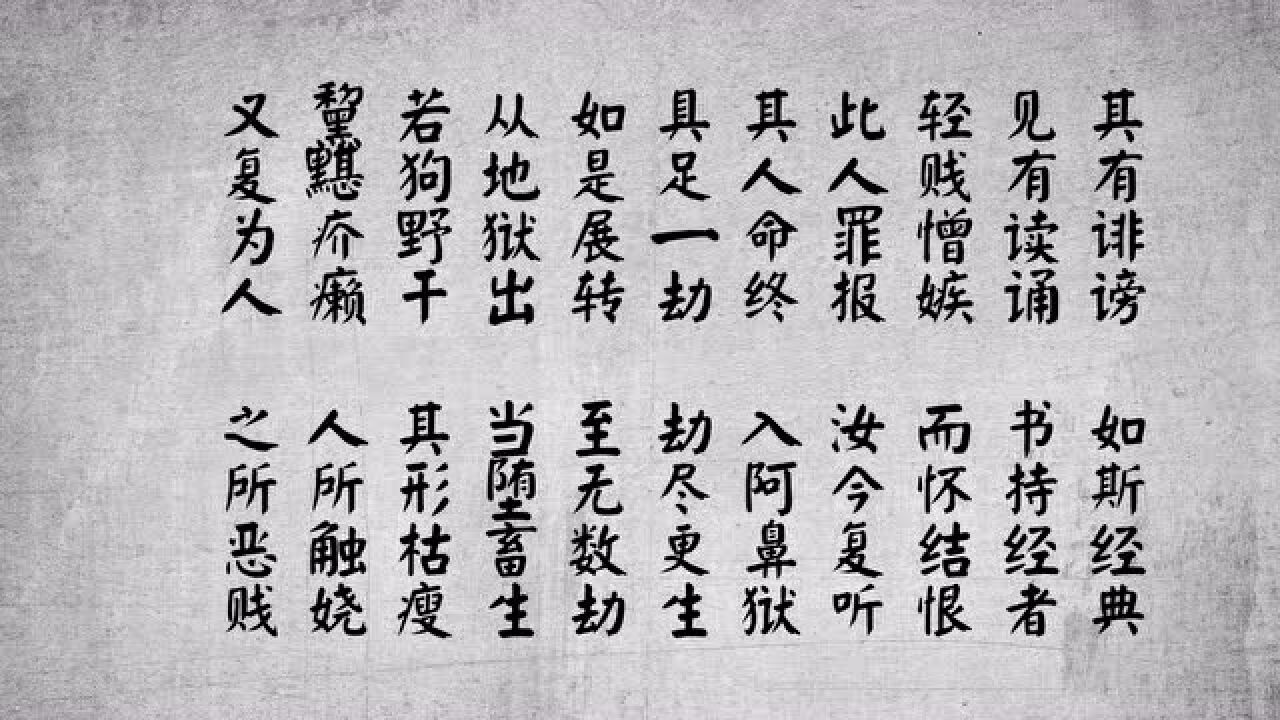 其有诽谤 如斯经典
见有读诵 书持经者
轻贱憎嫉 而怀结恨
此人罪报 汝今复听
其人命终 入阿鼻狱
具足一劫 劫尽更生
如是展转 至无数劫
从地狱出 当堕畜生
若狗野干 其形枯瘦
黧黮疥癞 人所触娆
又复为人 之所恶贱